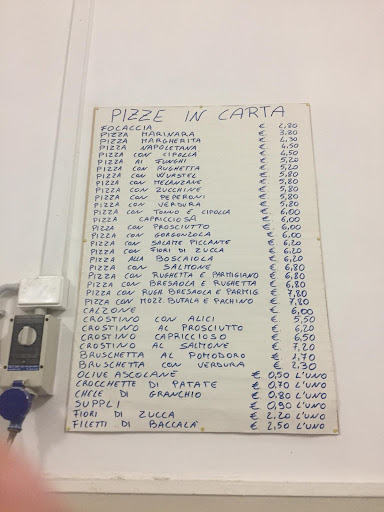 PIZZE IN CARTA
FOCACCIA € 2,80
PIZZA MARINARA € 3.80
PIZZA MARGHERITA € 4,30
PIZZA NAPOLETANA € 4.50
PIZZA CON CIPOLLA € 4,50
PIZZA AI FUNGHI € 5,20
PIZZA CON RUGHETTA € 5,20
PIZZA CON WURSTEL € 5,80
PIZZA CON MELANZANE € 5,80
PIZZA CON ZUCCHINE € 5,80
PIZZA CON PEPERONI € 5,80
PIZZA CON VERDURA € 5.80
PIZZA CON TONNO E CIPOLLA € 6,00
PIZZA CAPRICCIOSA € 6,00
PIZZA CON PROSCIUTTO € 6,00
PIZZA CON GORGONZOLA € 6,00
PIZZA CON SALAME PICCANTE € 6,20
PIZZA CON FIORI DI ZUCCA € 6,20
PIZZA ALLA BOSCAIOLA € 6,20
PIZZA CON SALMONE € 6,80
PIZZA CON RUGHETTA E PARMIGIANO € 6,80
PIZZA CON BRESAOLA E RUGHETTA € 6,80
PIZZA CON RUGH. BRESAOLA E PARMIG € 7,80
PIZZA CON MOZZ. BUFALA E PACHINO € 7,80
CALZONE € 6,00
CROSTINO CON ALICI € 5,50
CROSTINO AL PROSCIUTTO € 6,20
CROSTINO CAPRICCIOSO € 6,50
CROSTINO AL SALMONE € 7,20
BRUSCHETTA AL POMODORO € 1,70
BRUSCHETTA CON VERDURA € 2,30
OLIVE ASCOLANE € 0,50 L'UNO
CROCCHETTE DI PATATE € 0,70 L'UNO
CHELE DI GRANCHIO € 0.80 L'UNO
SUPPLI € 0,90 L'UNO
FIORI DI ZUCCA € 2.20 L'UNO
FILETTI DI BACCALA' € 2,50 L'UNO